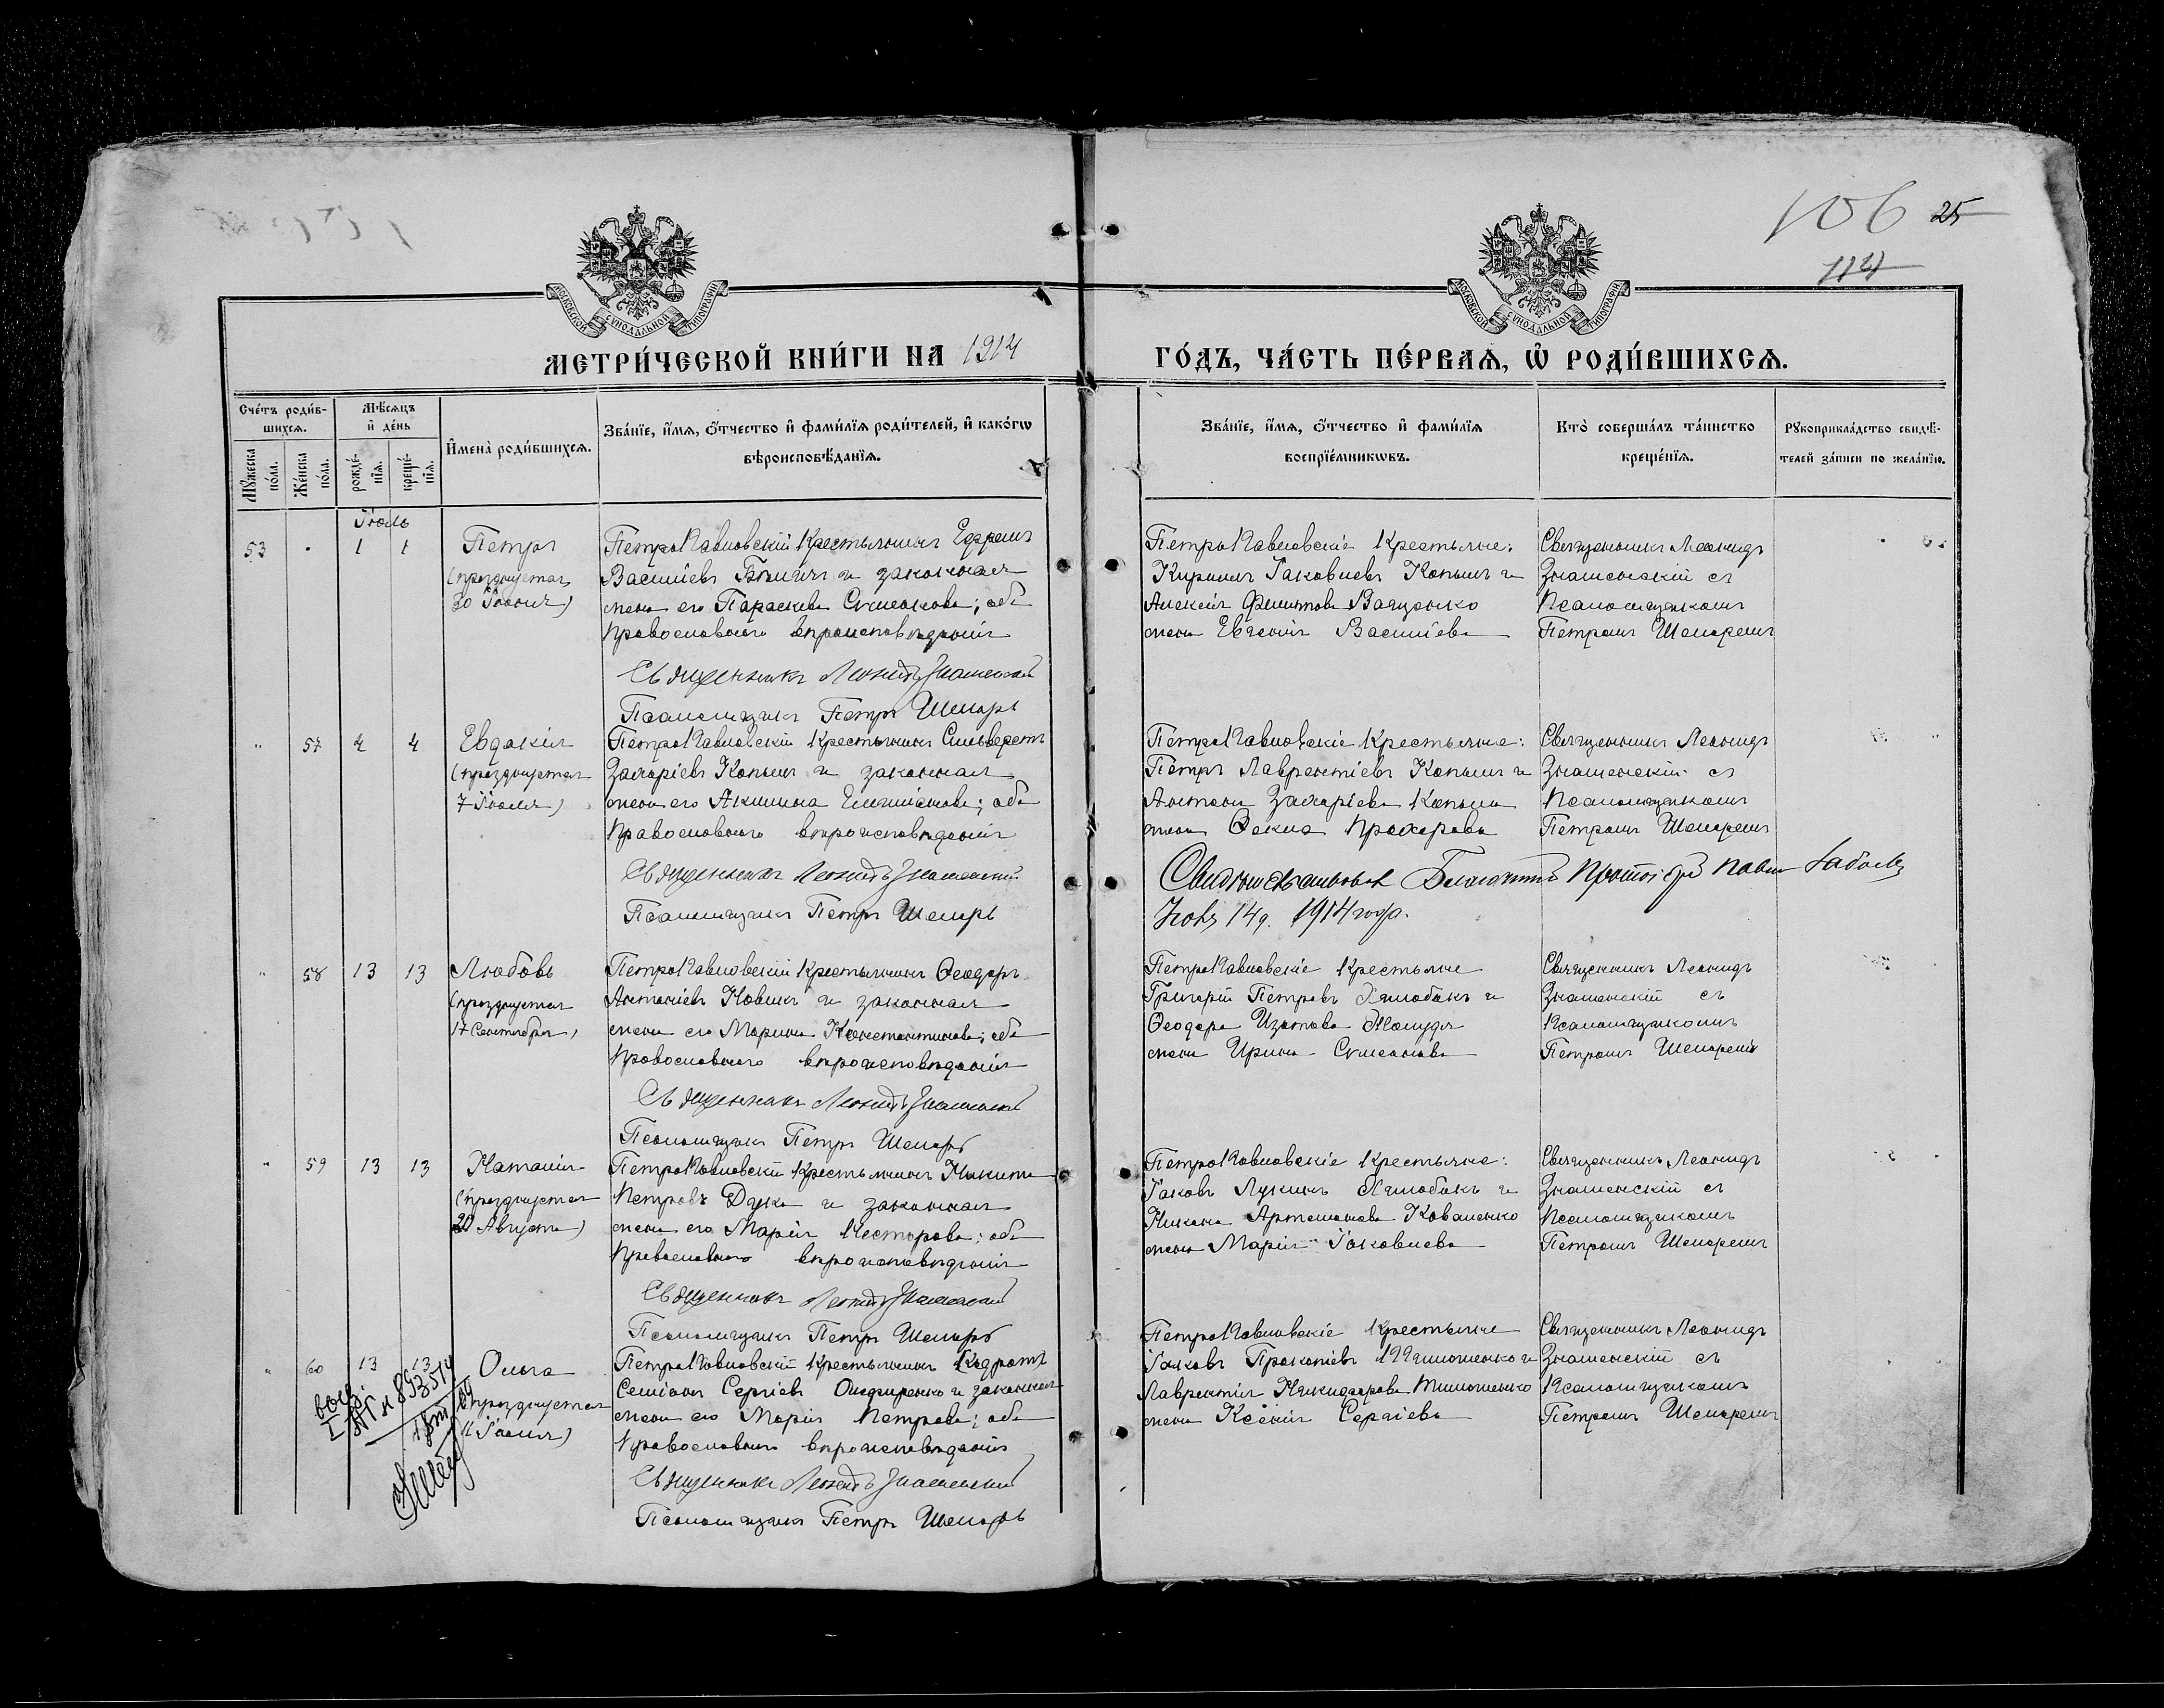 106 25
114
МОСКОВСКОЙ СУНОДАЛЬНОЙ ТИПОГРАФІИ
МОСКОВСКОЙ СУНОДАЛЬНОЙ ТИПОГРАФІИ
МЕТРИ́ЧЕСКОЙ КНИ́ГИ НА 1914
ГО́ДЪ, ЧА́СТЬ ПЕ́РВАѦ, Ѡ҆ РОДИ́ВШИХСѦ.
Сче́тъ роди́вшихсѧ.
Мꙋ́жеска по́ла.
Же́нска по́ла.
Мѣ́сѧцъ и҆ де́нь
рожде́нїѧ.
креще́нїѧ.
И҆мена̀ роди́вшихсѧ.
Зва́нїе, и҆́мѧ, ѻ҆́тчество и҆ фами́лїѧ роди́телей, и҆ како́гѡ
вѣроисповѣ́данїѧ.
Зва́нїе, и҆́мѧ, ѻ҆́тчество и҆ фами́лїѧ
воспрїе́мникѡвъ.
Кто̀ соверша́лъ та́инство
креще́нїѧ.
Рꙋкоприкла́дство свидѣ́-
телей за́писи по жела́нїю.
Іюль
53 1 1 Петръ
(празднуетъ
30 Іюня)
ПетроПавловскій Крестьянинъ Ефремъ
Василіевъ и законная
жена его Параскева Сумеонова; оба
Православнаго вѣроисповѣданія
Священникъ Леонидъ Знаменскій
Псаломщикъ Петръ Шепарь
ПетроПавловскіе Крестьяне:
Кириллъ Іаковлевъ Копыл и
Алексія Филиппова Ващенко
жена Евгенія Василіева
Священникъ Леонидъ
Знаменскій съ
Псаломщикомъ
Петромъ Шепаремъ
" 57 4 4 Евдокія
(празднуетъ
7 Іюля)
ПетроПавловскій Крестьянинъ Сильверстъ
Захаріевъ Копыл и законная
жена его Акилина; оба
Православнаго вѣроисповѣданія
Священникъ Леонидъ Знаменскій
Псаломщикъ Петръ Шепарь
ПетроПавловскіе Крестьяне:
Петръ Лаврентіевъ Копыл и
Антона Захаріева Копыла
жена Ѳекла Прохорова
Священникъ Леонидъ
Знаменскій съ
Псаломщикомъ
Петромъ Шепаремъ
Свидѣтельствовалъ Благочинный Протоіерей
Ноя 14 д. 1914 года.
" 58 13 13 Любовь
(празднуетъ
17 Сентября)
ПетроПавловскій Крестьянинъ Ѳеодоръ
Антоніевъ Новикъ и законная
жена его Марина Константинова; оба
Православнаго вѣроисповѣданія
Священникъ Леонидъ Знаменскій
Псаломщикъ Петръ Шепарь
ПетроПавловскіе Крестьяне
Григорій Петровъ и
Ѳеодора
жена Ирина Сумеонова
Священникъ Леонидъ
Знаменскій съ
Псаломщикомъ
Петромъ Шепаремъ
" 59 13 13 Наталія
(празднуетъ
20 Августа)
ПетроПавловскій Крестьянинъ Никита
Петровъ Дука и законная
жена его Марія Несторова; оба
Православнаго вѣроисповѣданія
Священникъ Леонидъ Знаменскій
Псаломщикъ Петръ Шепарь
ПетроПавловскіе Крестьяне:
Іаковъ Лукинъ и
Никона Артемонова Коваленко
жена Марія Іаковлева
Священникъ Леонидъ
Знаменскій съ
Псаломщикомъ
Петромъ Шепаремъ
" 60 13 13 Ольга
(празднуетъ
11 Іюля)
ПетроПавловскій Крестьянинъ Кодратъ
Сергіевъ и законная
жена его Марія Петрова; оба
Православнаго вѣроисповѣданія
Священникъ Леонидъ Знаменскій
Псаломщикъ Петръ Шепарь
ПетроПавловскіе Крестьяне
Іаковъ Прокопіевъ и
Лаврентія Никифорова Тимошенко
жена Ксенія Сергіева
Священникъ Леонидъ
Знаменскій съ
Псаломщикомъ
Петромъ Шепаремъ